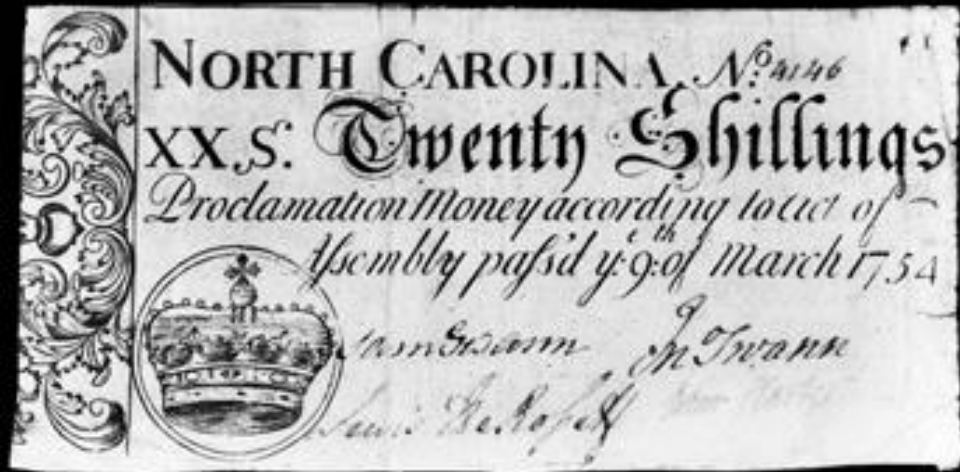 NORTH CAROLINA No. 4146
XX.S. Twenty Shillings
Proclamation Money according to Act of
Assembly pass'd ye: 9th: of March 1754
Sam Swann Jn Swann
Lewis De Rosset